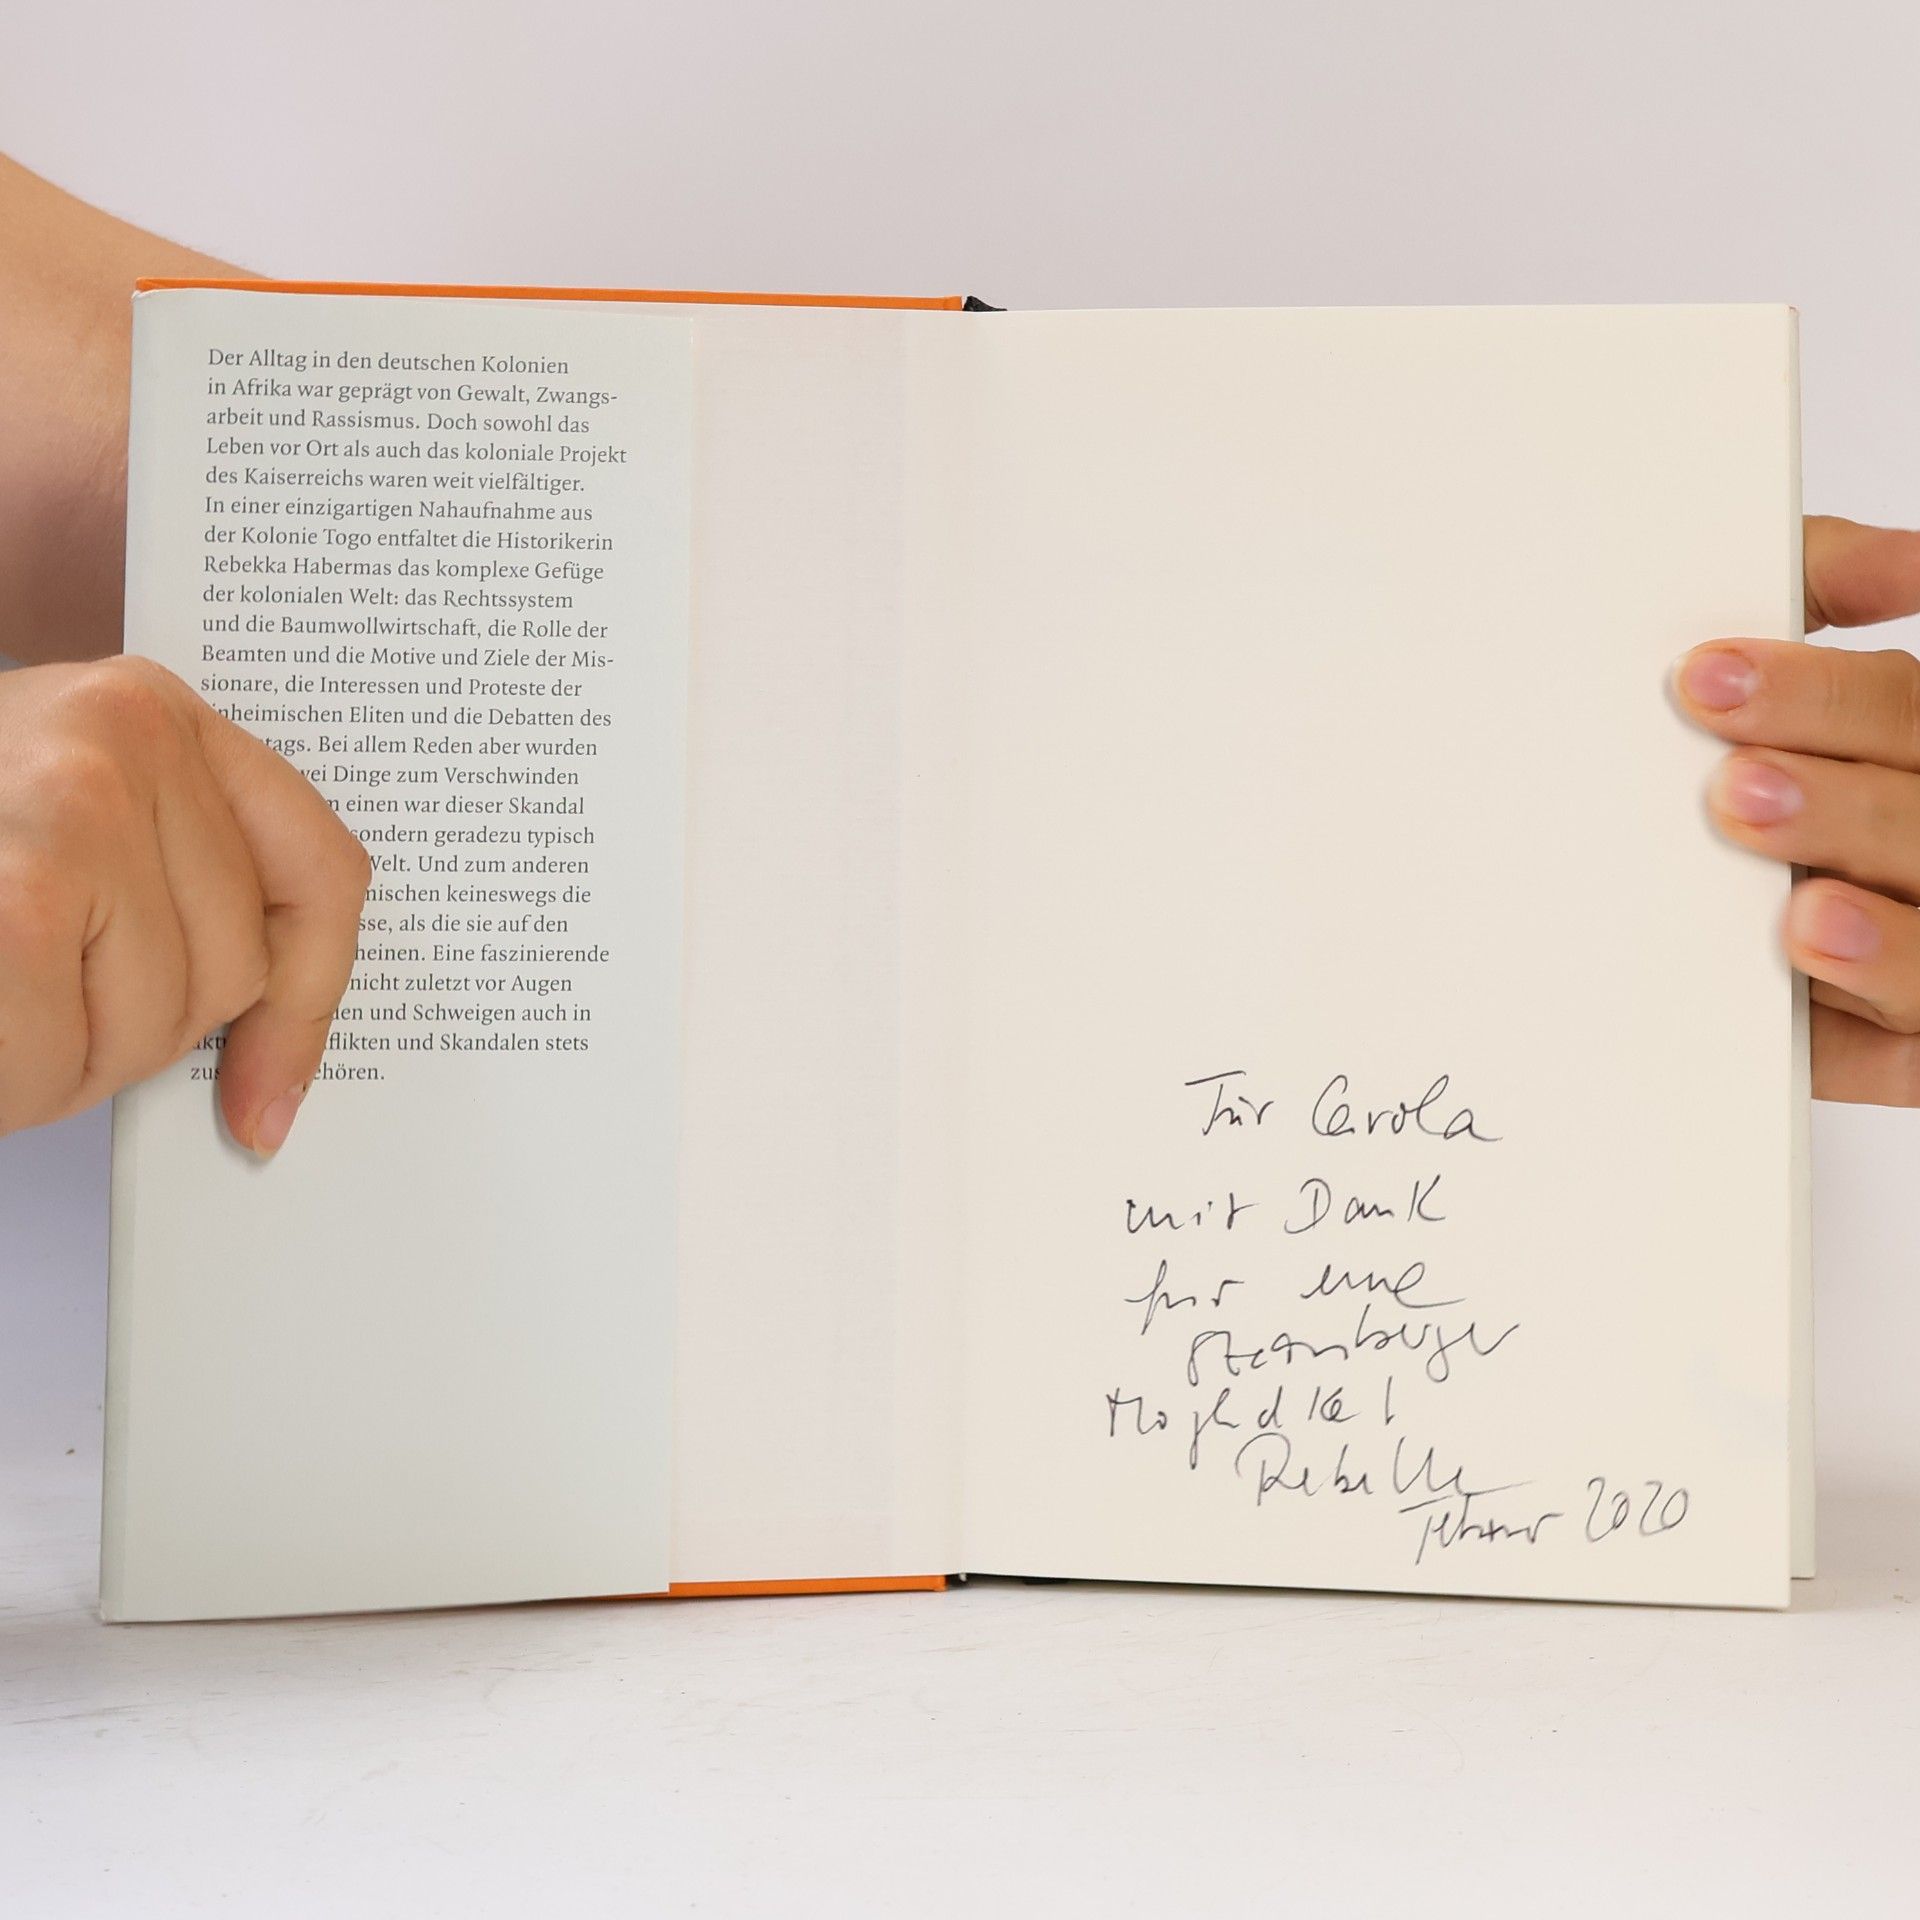 Der Alltag in den deutschen Kolonien
in Afrika war geprägt von Gewalt, Zwangs-
arbeit und Rassismus. Doch sowohl das
Leben vor Ort als auch das koloniale Projekt
des Kaiserreichs waren weit vielfältiger.
In einer einzigartigen Nahaufnahme aus
der Kolonie Togo entfaltet die Historikerin
Rebekka Habermas das komplexe Gefüge
der kolonialen Welt: das Rechtssystem
und die Baumwollwirtschaft, die Rolle der
Beamten und die Motive und Ziele der Mis-
sionare, die Interessen und Proteste der
inheimischen Eliten und die Debatten des
tags. Bei allem Reden aber wurden
Dinge zum Verschwinden
einen war dieser Skandal
sondern geradezu typisch
Welt. Und zum anderen
mischen keineswegs die
sse, als die sie auf den
heinen. Eine faszinierende
nicht zuletzt vor Augen
und Schweigen auch in
flikten und Skandalen stets
zus hören.
Für Carola
mit Dank
für eine
Starnberger
Möglichkeit
Rebekka
Februar 2020